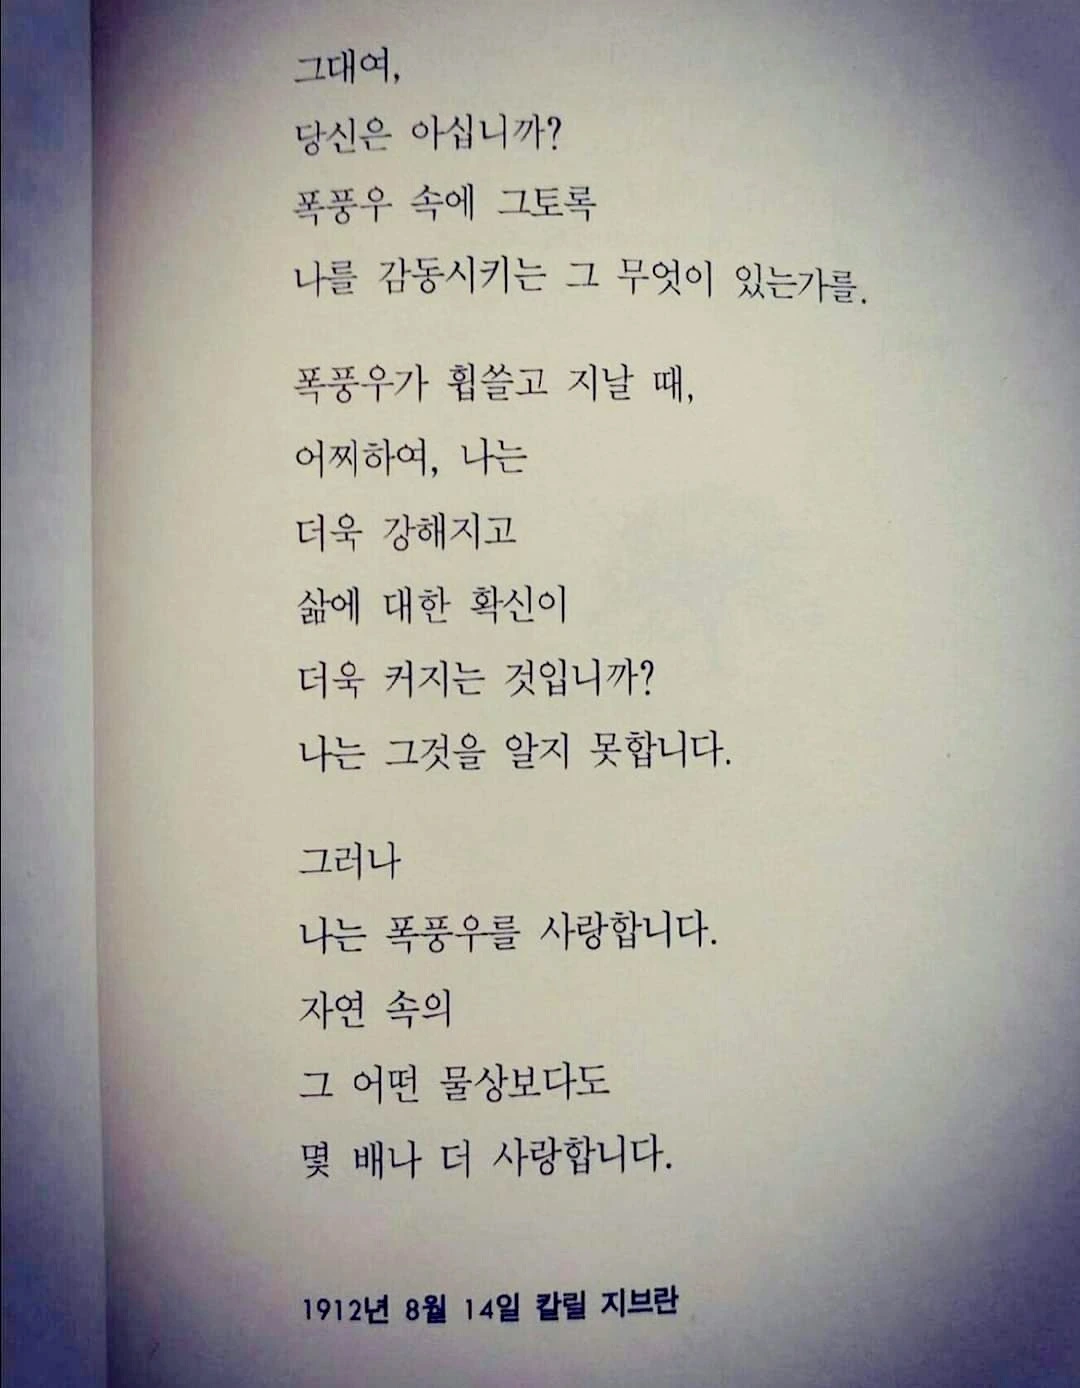 그대여,
당신은 아십니까?
폭풍우 속에 그토록
나를 감동시키는 그 무엇이 있는가를.
폭풍우가 휩쓸고 지날 때,
어찌하여, 나는
더욱 강해지고
삶에 대한 확신이
더욱 커지는 것입니까?
나는 그것을 알지 못합니다.
그러나
나는 폭풍우를 사랑합니다.
자연 속의
그 어떤 물상보다도
몇 배나 더 사랑합니다.
1912년 8월 14일 칼릴 지브란